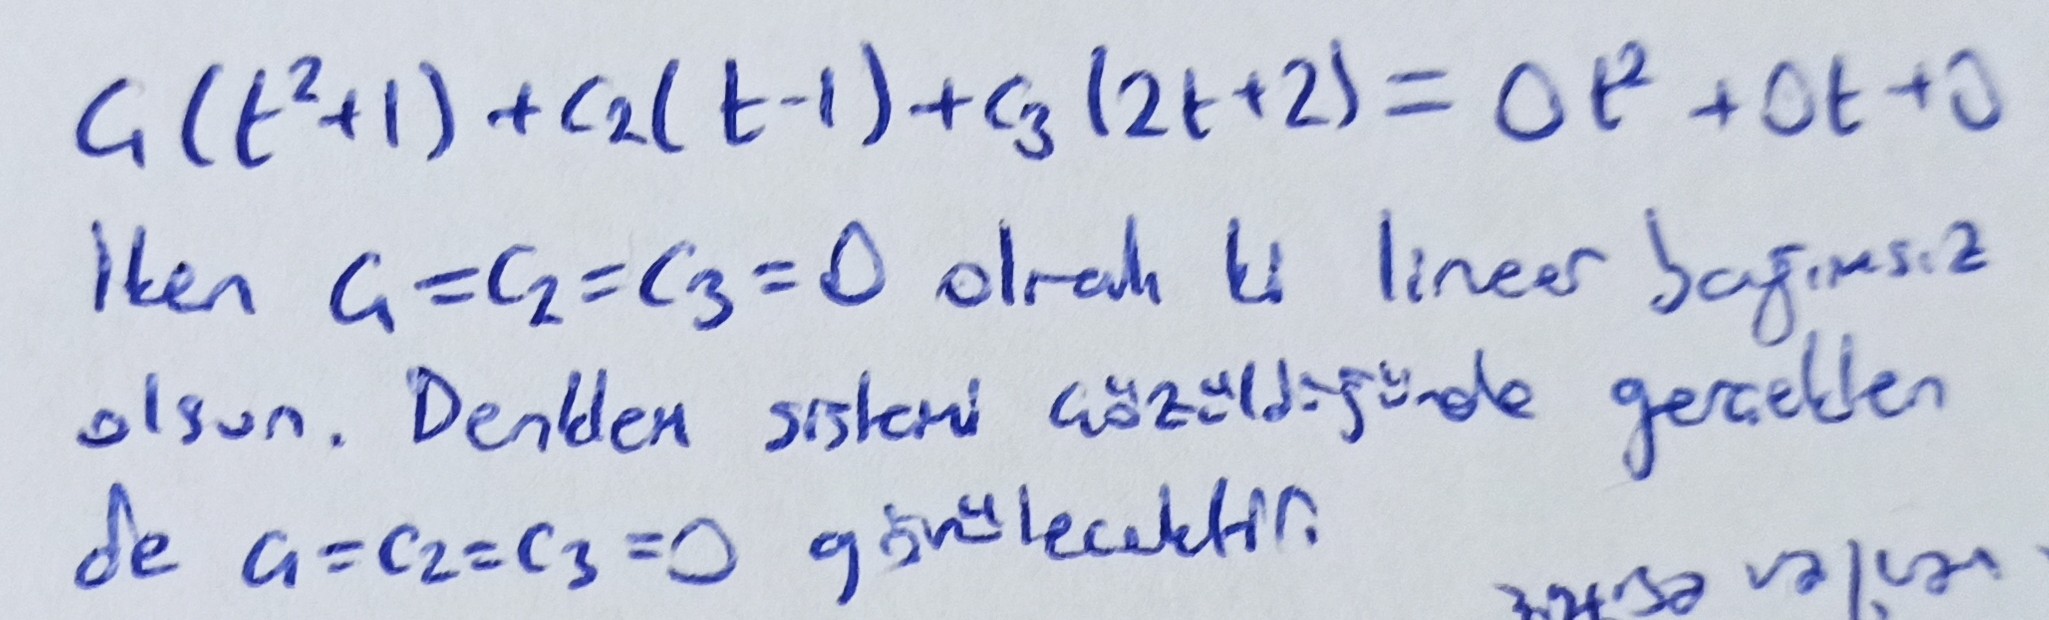 C₁(t²+1)+C₂(t-1)+C₃(2t+2)=0t²+0t+0
Iken C₁=C₂=C₃=0 olmalı ki lineer bağımsız
olsun. Denklem sistemi çözüldüğünde gerçekten
de C₁=C₂=C₃=0 görülecektir.